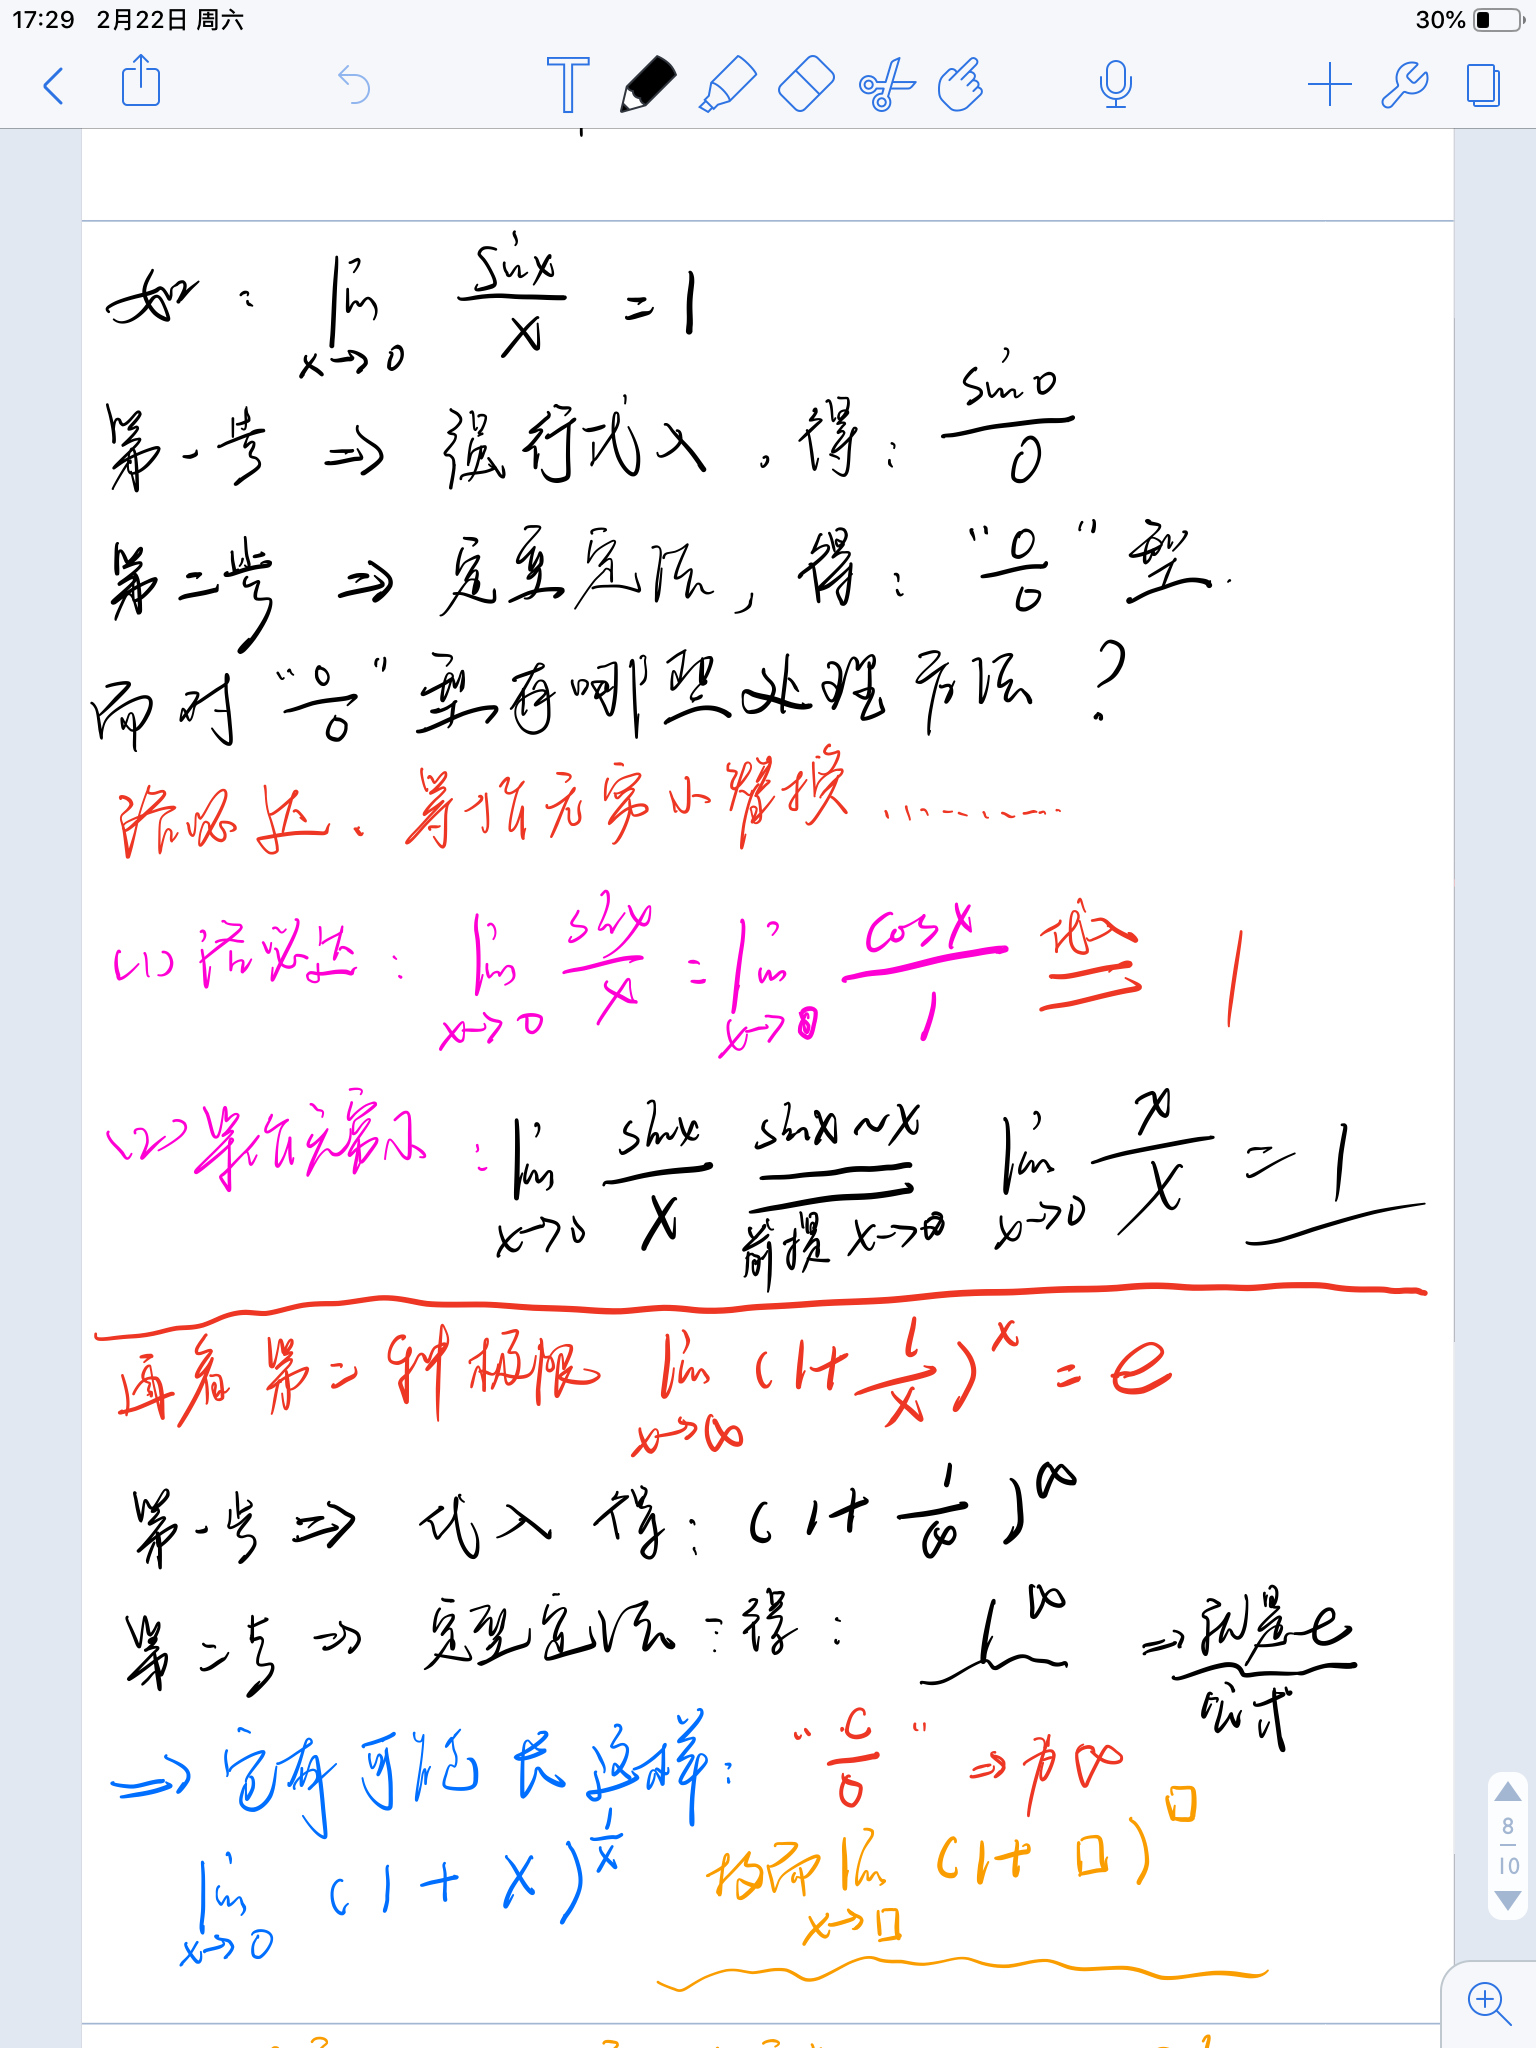 17:29 2月22日 周六 30%
如: lim x→0 sinx/x = 1
第一步 ⇒ 强行代入. 得: sin0/0
第二步 ⇒ 定型定法, 得: "0/0"型.
而对"0/0"型有哪些处理方法?
洛必达、等价无穷小替换………
(1)洛必达: lim x→0 sinx/x = lim x→0 cosx/1 代入= 1
(2)等价无穷小: lim x→0 sinx/x sinx~x 前提 x→0 = lim x→0 x/x = 1
再看第二种极限 lim x→∞ (1+1/x)^x = e
第一步 ⇒ 代入 得: (1+1/∞)^∞
第二步 ⇒ 定型定法: 得: 1^∞ ⇒就是e
公式
⇒它有可能长这样: "C/0" ⇒ 为∞
lim x→0 (1+x)^(1/x) 故而 lim x→□ (1+□)^□
8
10